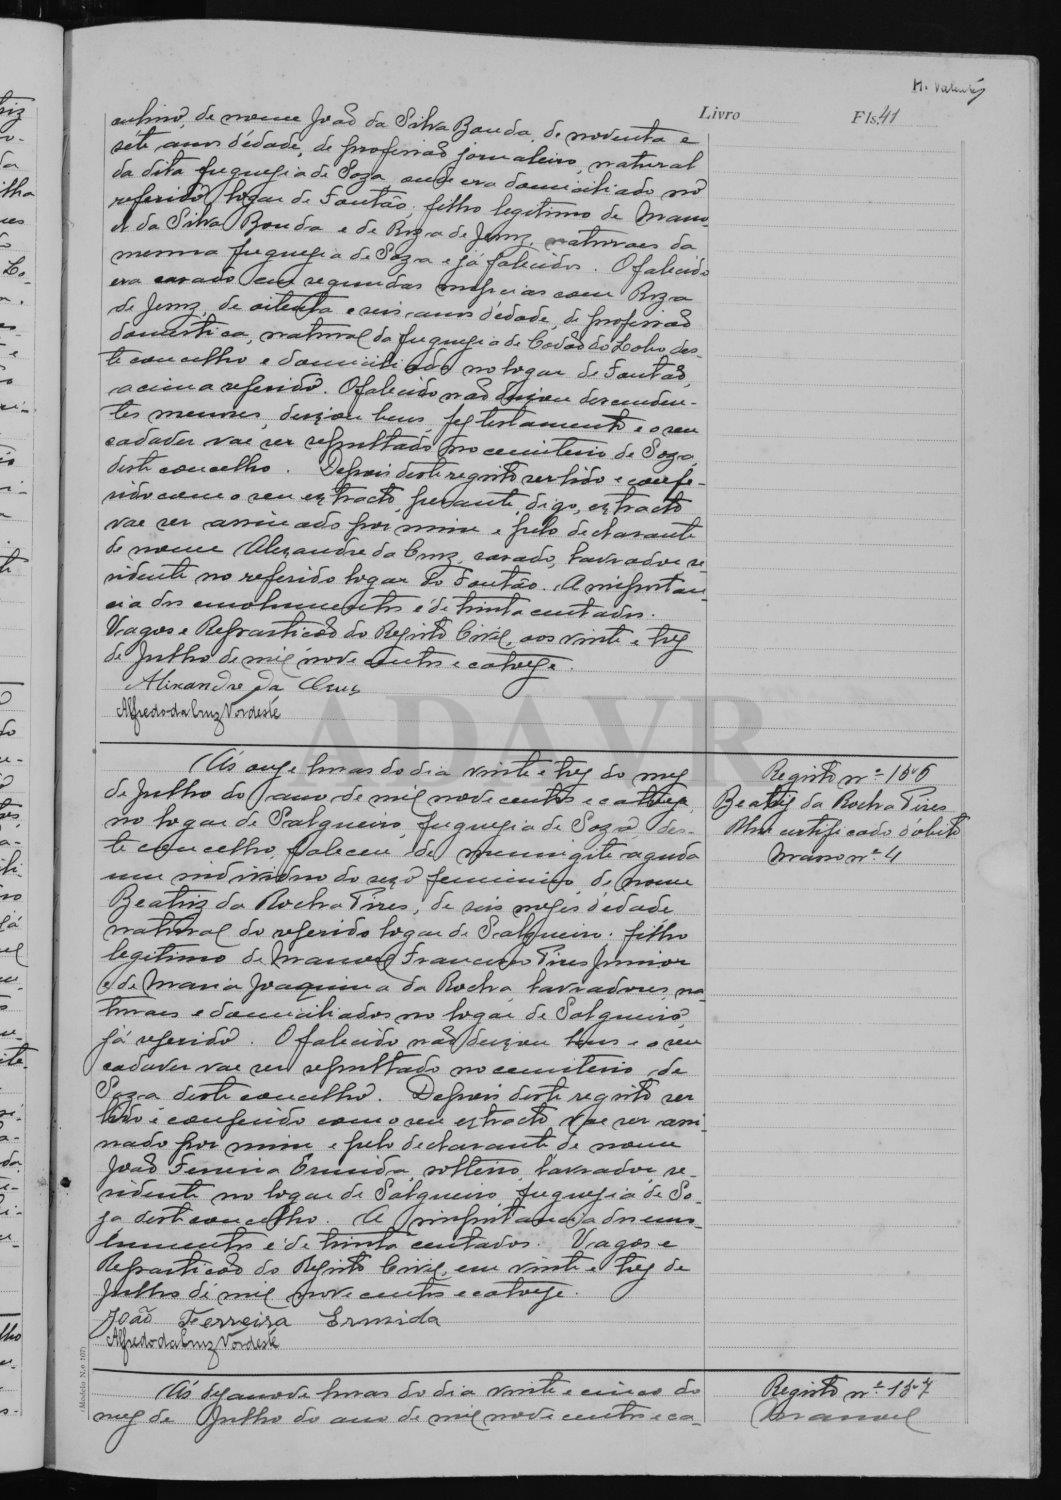 M. Valente
Livro Fls. 41
culino, de nome João da Silva Bouda, de noventa e
sete annos d'edade, de profissão jornaleiro, natural
da dita freguesia de Soza, onde era domiciliado no
referido logar de Fontão, filho legitimo de Mano-
el da Silva Bouda e de Roza de Jesuz, naturaes da
mesma freguesia de Soza e já falecidos. O falecido
era casado em segundas nupcias com Roza
de Jesuz, de oitenta e seis annos d'edade, de profissão
domestica, natural da freguesia de Covão do Lobo, des-
te concelho e domiciliado no logar de Fontão,
acima referido. O falecido não deixou descenden-
tes menores, deixou bens, fez testamento e o seu
cadaver vae ser sepultado no cemiterio de Soza,
deste concelho. Depois deste registo ser lido e confe-
rido com o seu extracto, perante, digo, extracto
vae ser assinado por mim e pelo declarante
de nome Alexandre da Cruz, casado, lavrador re-
sidente no referido logar do Fontão. A importan-
cia dos emolumentos é de trinta centados.
Vagos e Repartição do Registo Civil, aos vinte e trez
de Julho de mil nove centos e catorze.
Alixandre da Cruz
Alfredo da Cruz Nordeste
ADAVR
Ás onze horas do dia vinte e trez do mez
de Julho do anno de mil nove centos e catorze,
no logar de Salgueiro, freguesia de Soza, des-
te concelho, faleceu de meningite aguda
um individuo do sexo feminino, de nome
Beatriz da Rocha Pires, de seis mezes d'edade
natural do referido logar de Salgueiro, filho
legitimo de Manoel Francisco Pires Junior
e de Maria Joaquina da Rocha, lavradores, na-
turaes e domiciliados no logar de Salgueiro,
já referido. O falecido não deixou bens e o seu
cadaver vae ser sepultado no cemiterio de
Soza deste concelho. Depois deste registo ser
lido e conferido com o seu extracto vae ser assi-
nado por mim e pelo declarante de nome
João Ferreira Ermida, solteiro, lavrador, re-
sidente no logar de Salgueiro, freguesia de So-
za deste concelho. A importancia dos emo-
lumentos é de trinta centados. Vagos e
Repartição do Registo Civil, em vinte e trez de
Julho de mil nove centos e catorze.
João Ferreira Ermida
Alfredo da Cruz Nordeste
Registo nº 156
Beatriz da Rocha Pires
certificado d'obito
Masso nº 4
(Modelo N.o 207)
Ás dezanove horas do dia vinte e cinco do
mez de Julho do ano de mil nove centos e ca-
Registo nº 157
Manoel